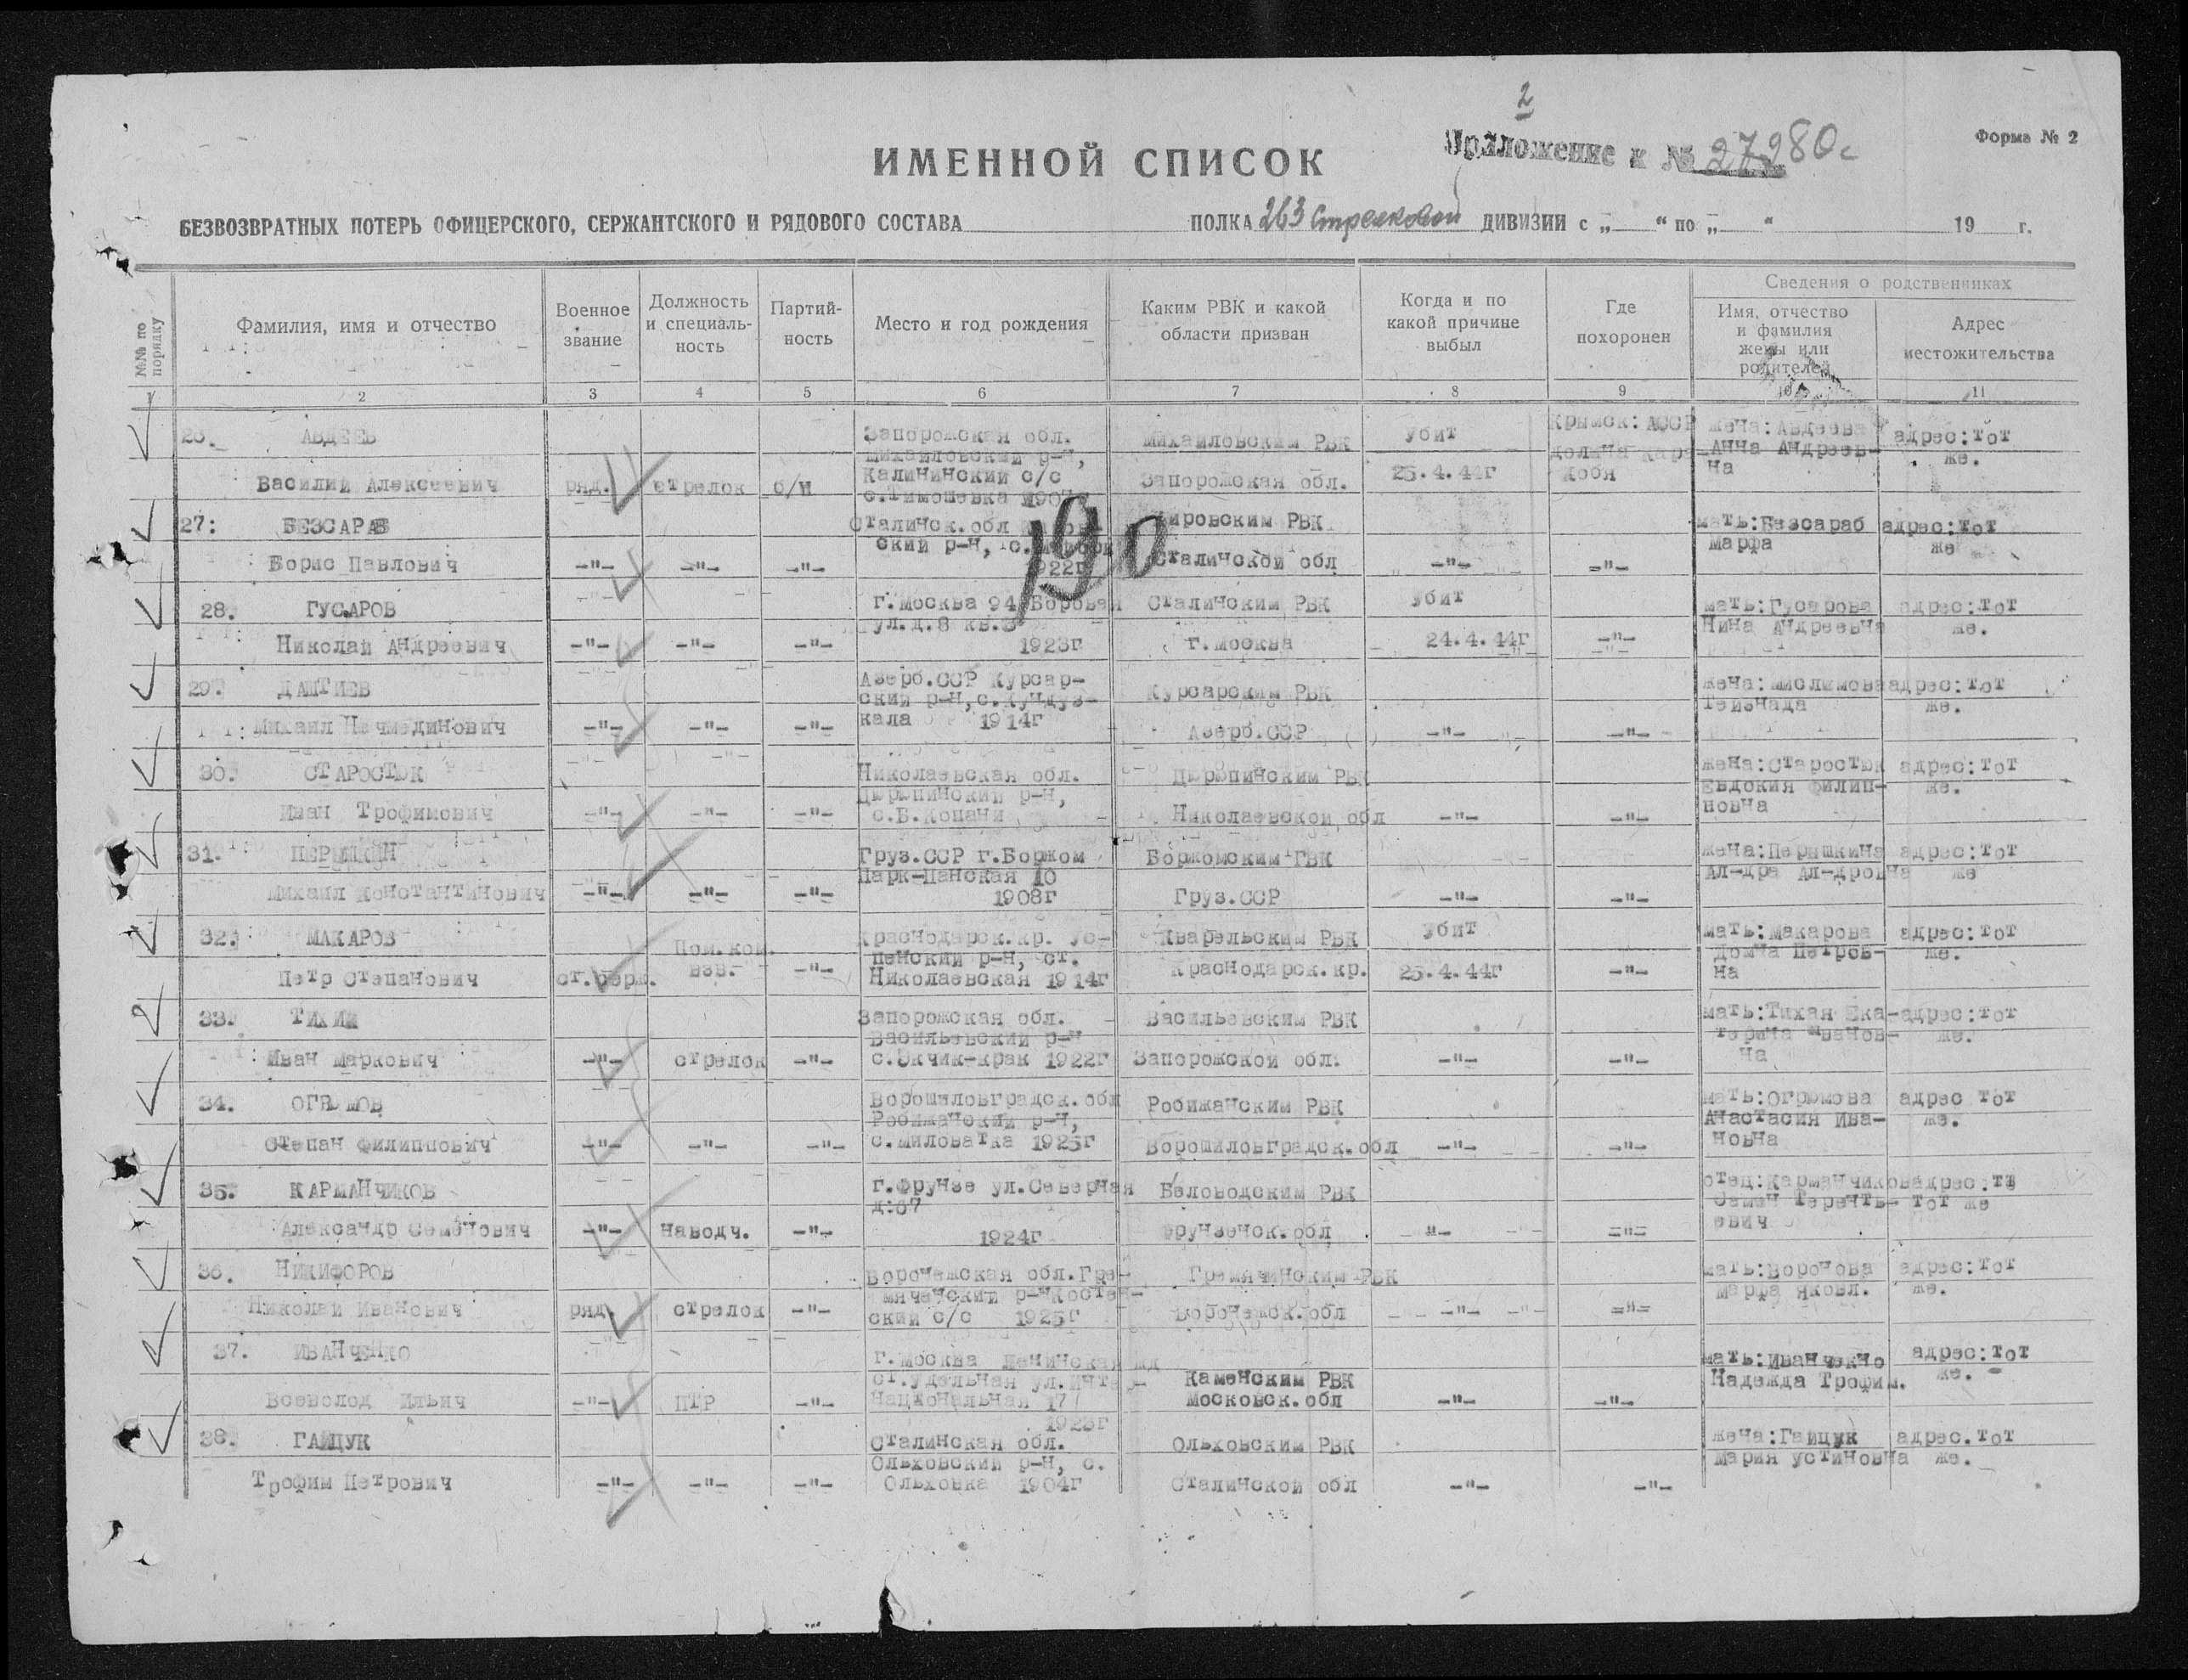 2
Приложение к № 27280с
Форма № 2
ИМЕННОЙ СПИСОК
БЕЗВОЗВРАТНЫХ ПОТЕРЬ ОФИЦЕРСКОГО, СЕРЖАНТСКОГО И РЯДОВОГО СОСТАВА ПОЛКА 263 Стрелковой ДИВИЗИИ с „ “ по „ “ 19 г.
№№ по порядку
Фамилия, имя и отчество
Военное звание
Должность и специаль-ность
Партий-ность
Место и год рождения
Каким РВК и какой области призван
Когда и по какой причине выбыл
Где похоронен
Сведения о родственниках
Имя, отчество и фамилия жены или родителей
Адрес местожительства
1 2 3 4 5 6 7 8 9 10 11
190
26. АВДЕЕВ Запорожская обл. Михайловским РВК убит Крымск: АССР жена: Авдеева адрес:тот
Михайловский р-н, долина Кара- Анна Андреев- же.
Василий Алексеевич ряд. стрелок б/п Калининский с/с Запорожская обл. 25.4.44г Коба на
с.Тимошевка
27: БЕЗСАРАБ Сталинск.обл Кировским РВК мать:Безсараб адрес:тот
ский р-н, с. Марфа же
Борис Павлович -"- -"- -"- 1922г Сталинской обл -"- -"-
28. ГУСАРОВ г.Москва 94 Боровая Сталинским РВК убит мать:Гусарова адрес:тот
ул.д.8 кв.3 Нина Андреевна же.
Николай Андреевич -"- -"- -"- 1923г г.Москва 24.4.44г -"-
29. ДАШТИЕВ Азерб.ССР Курсар- Курсарским РВК жена: адрес:тот
ский р-н,с.Кундуз- же.
Михаил -"- -"- -"- кала 1914г Азерб.ССР -"- -"-
30. СТАРОСТЮК Николаевская обл. Цюрупинским РВК жена:Старостюк адрес:тот
Цюрупинский р-н, Евдокия Филип- же.
Иван Трофимович -"- -"- -"- с.Б.Копани Николаевской обл -"- -"- новна
31. ПЕРЫШКИН Груз.ССР г.Боржом Боржомским ГВК жена:Перышкина адрес:тот
Парк-Цанская 10 Ал-дра Ал-дровна же
Михаил Константинович -"- -"- -"- 1908г Груз.ССР -"- -"-
32. МАКАРОВ Пом.ком. Краснодарск.кр. Ус- Кварельским РВК убит мать:Макарова адрес:тот
пенский р-н, ст. Домна Петров- же.
Петр Степанович ст.серж. взв. -"- Николаевская 1914г Краснодарск.кр. 25.4.44г -"- на
33. ТИХИЙ Запорожская обл. Васильевским РВК мать:Тихая Ека- адрес:тот
Васильевский р-н терина Иванов- же.
Иван Маркович -"- стрелок -"- с.Экчик-крак 1922г Запорожской обл. -"- -"- на
34. ОГРЫМОВ Ворошиловградск.обл Робижанским РВК мать:Огрюмова адрес тот
Робижанский р-н, Анастасия Ива- же.
Степан Филиппович -"- -"- -"- с.Миловатка 1925г Ворошиловградск.обл -"- -"- новна
35. КАРМАНЧИКОВ г.Фрунзе ул.Северная Беловодским РВК отец:Карманчиков адрес:
Семен Теренть- тот же
Александр Семенович -"- наводч. -"- 1924г Фрунзенск.обл -"- -"- евич
36. НИКИФОРОВ Воронежская обл.Гре- Гремяченским РВК мать:Воронова адрес:тот
мяченский р-н Костен- Марфа Яковл. же.
Николай Иванович ряд стрелок -"- ский с/с 1925г Воронежск.обл -"- -"-
37. ИВАНЧЕНКО г.Москва Ленинская жд мать:Иванченко адрес:тот
ст.Удельная ул.Инте- Каменским РВК Надежда Трофим. же.
Всеволод Ильич -"- ПТР -"- национальная 17 Московск.обл -"- -"-
1923г
38. ГАЙЦУК Сталинская обл. Ольховским РВК жена:Гайцук адрес.тот
Ольховский р-н, с. Мария Устиновна же.
Трофим Петрович -"- -"- -"- Ольховка 1904г Сталинской обл -"- -"-